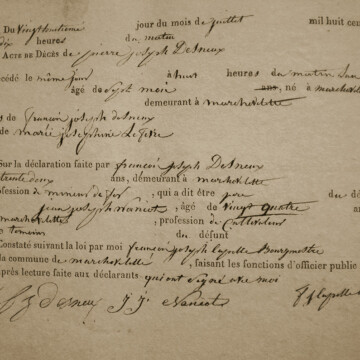 Du Vingthuitieme jour du mois de juillet mil huit cen
dix heures du matin
ACTE DE DÉCÈS de pierre joseph Desneux
cédé le même jour à huit heures du matin
âgé de Sept mois ans, né à marchovelette
demeurant à marchovelette
s de francois joseph desneux
de marie josephine
Sur la déclaration faite par francois joseph Desneux
trente deux ans, demeurant à marchovelette
ofession de mineur de fer, qui a dit être père du dé
jean joseph naniot, âgé de vingt quatre
marchovelette, profession de Cultivateur
temoin du défunt
Constaté suivant la loi par moi francois joseph lapelle Bourgmestre
la commune de marchovelette, faisant les fonctions d'officier public
après lecture faite aux déclarants qui ont Signé avec moi
Desneux J. J. Naniot